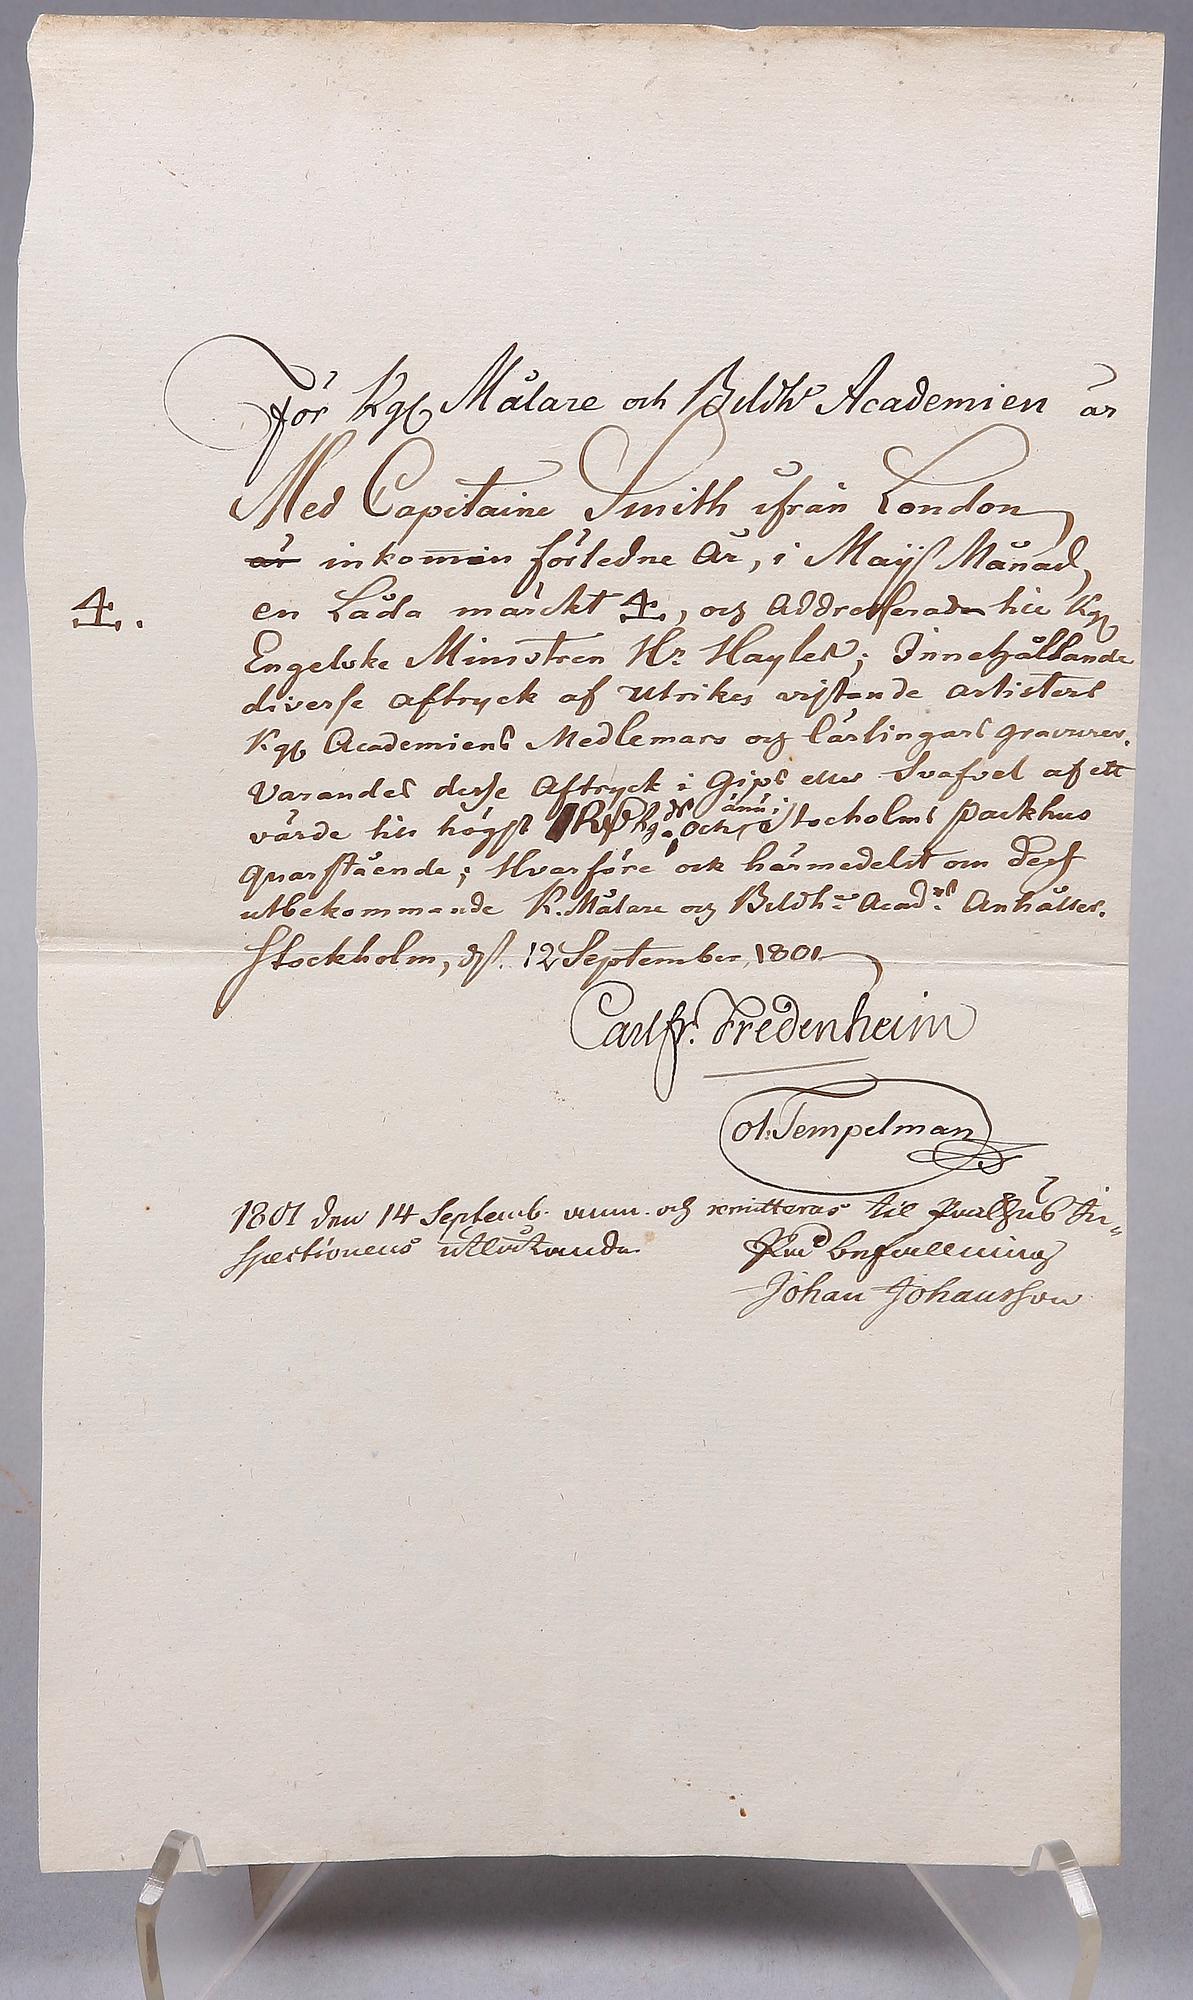 För Kgl Målare och Bildhr Academien är
Med Capitaine Smith ifrån London
är inkommin förledne År, i Maji Månad,
4. en Låda märckt 4., och Addresserad til Kgl
Engelske Ministren Hr Hayles; Innehållande
diverse aftryck af utrikes vistande artisters
Kgl Academiens Medlemars och lärlingars gravurer.
Varandes desse Aftryck i Gips eller Svafvel af ett
värde til högst Rdr och ännu i Stocholms Packhus
quarstående; Hvarföre ock härmedelst om Dess
utbekommande K. Målare och Bildhr Acadns Anhåller.
Stockholm, d. 12 September 1801
Carl Fr. Fredenheim
Ol. Tempelman
1801 den 14 Septemb. och remitteras til Packhus In-
spectionens utlåtande.
På befallning
Johan Johansson